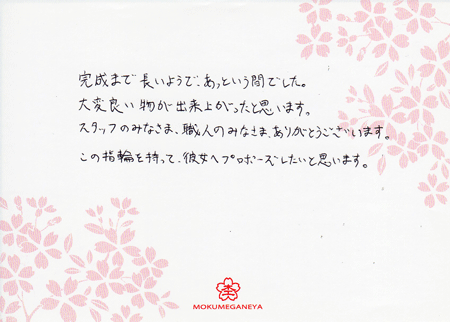 完成まで長いようで、あっという間でした。
大変良い物が出来上がったと思います。
スタッフのみなさま、職人のみなさま、ありがとうございます。
この指輪を持って、彼女へプロポーズしたいと思います。
MOKUMEGANEYA